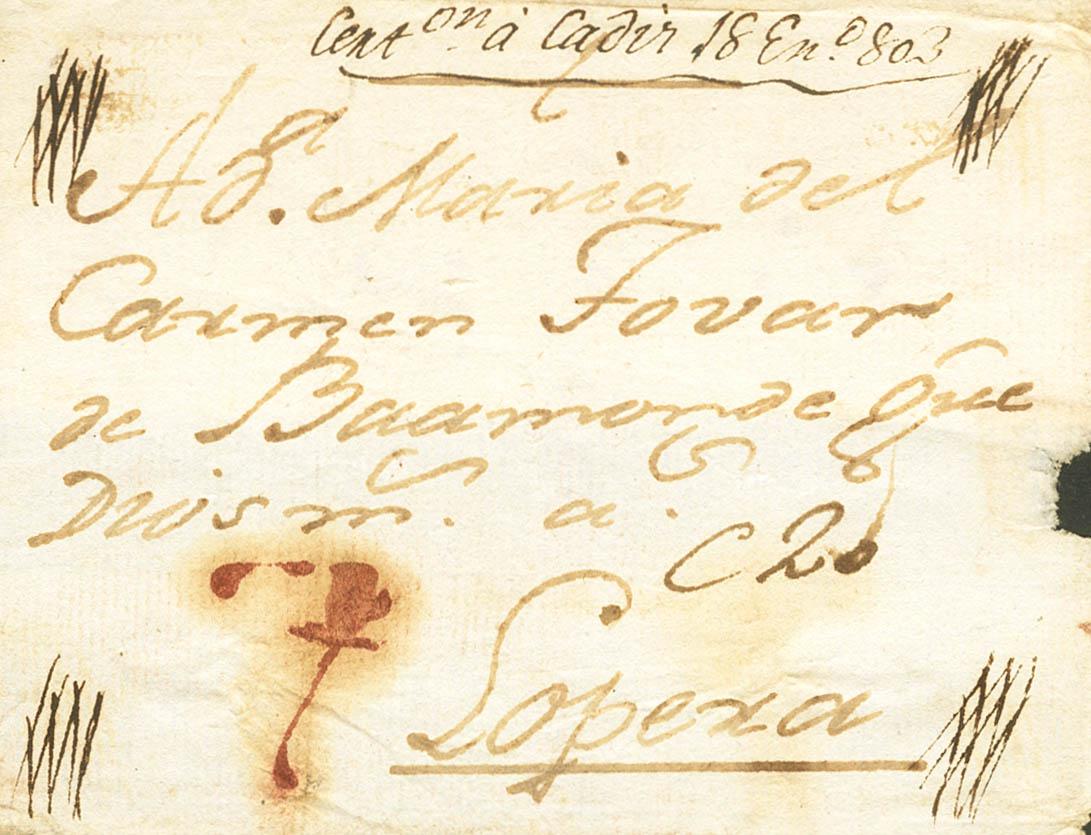 Cert.on à Cadiz 18 En.o 803
A d.a Maria del
Carmen Tovar
de Baamonde que
Dios m.s a.s
C 20
7
Lopera